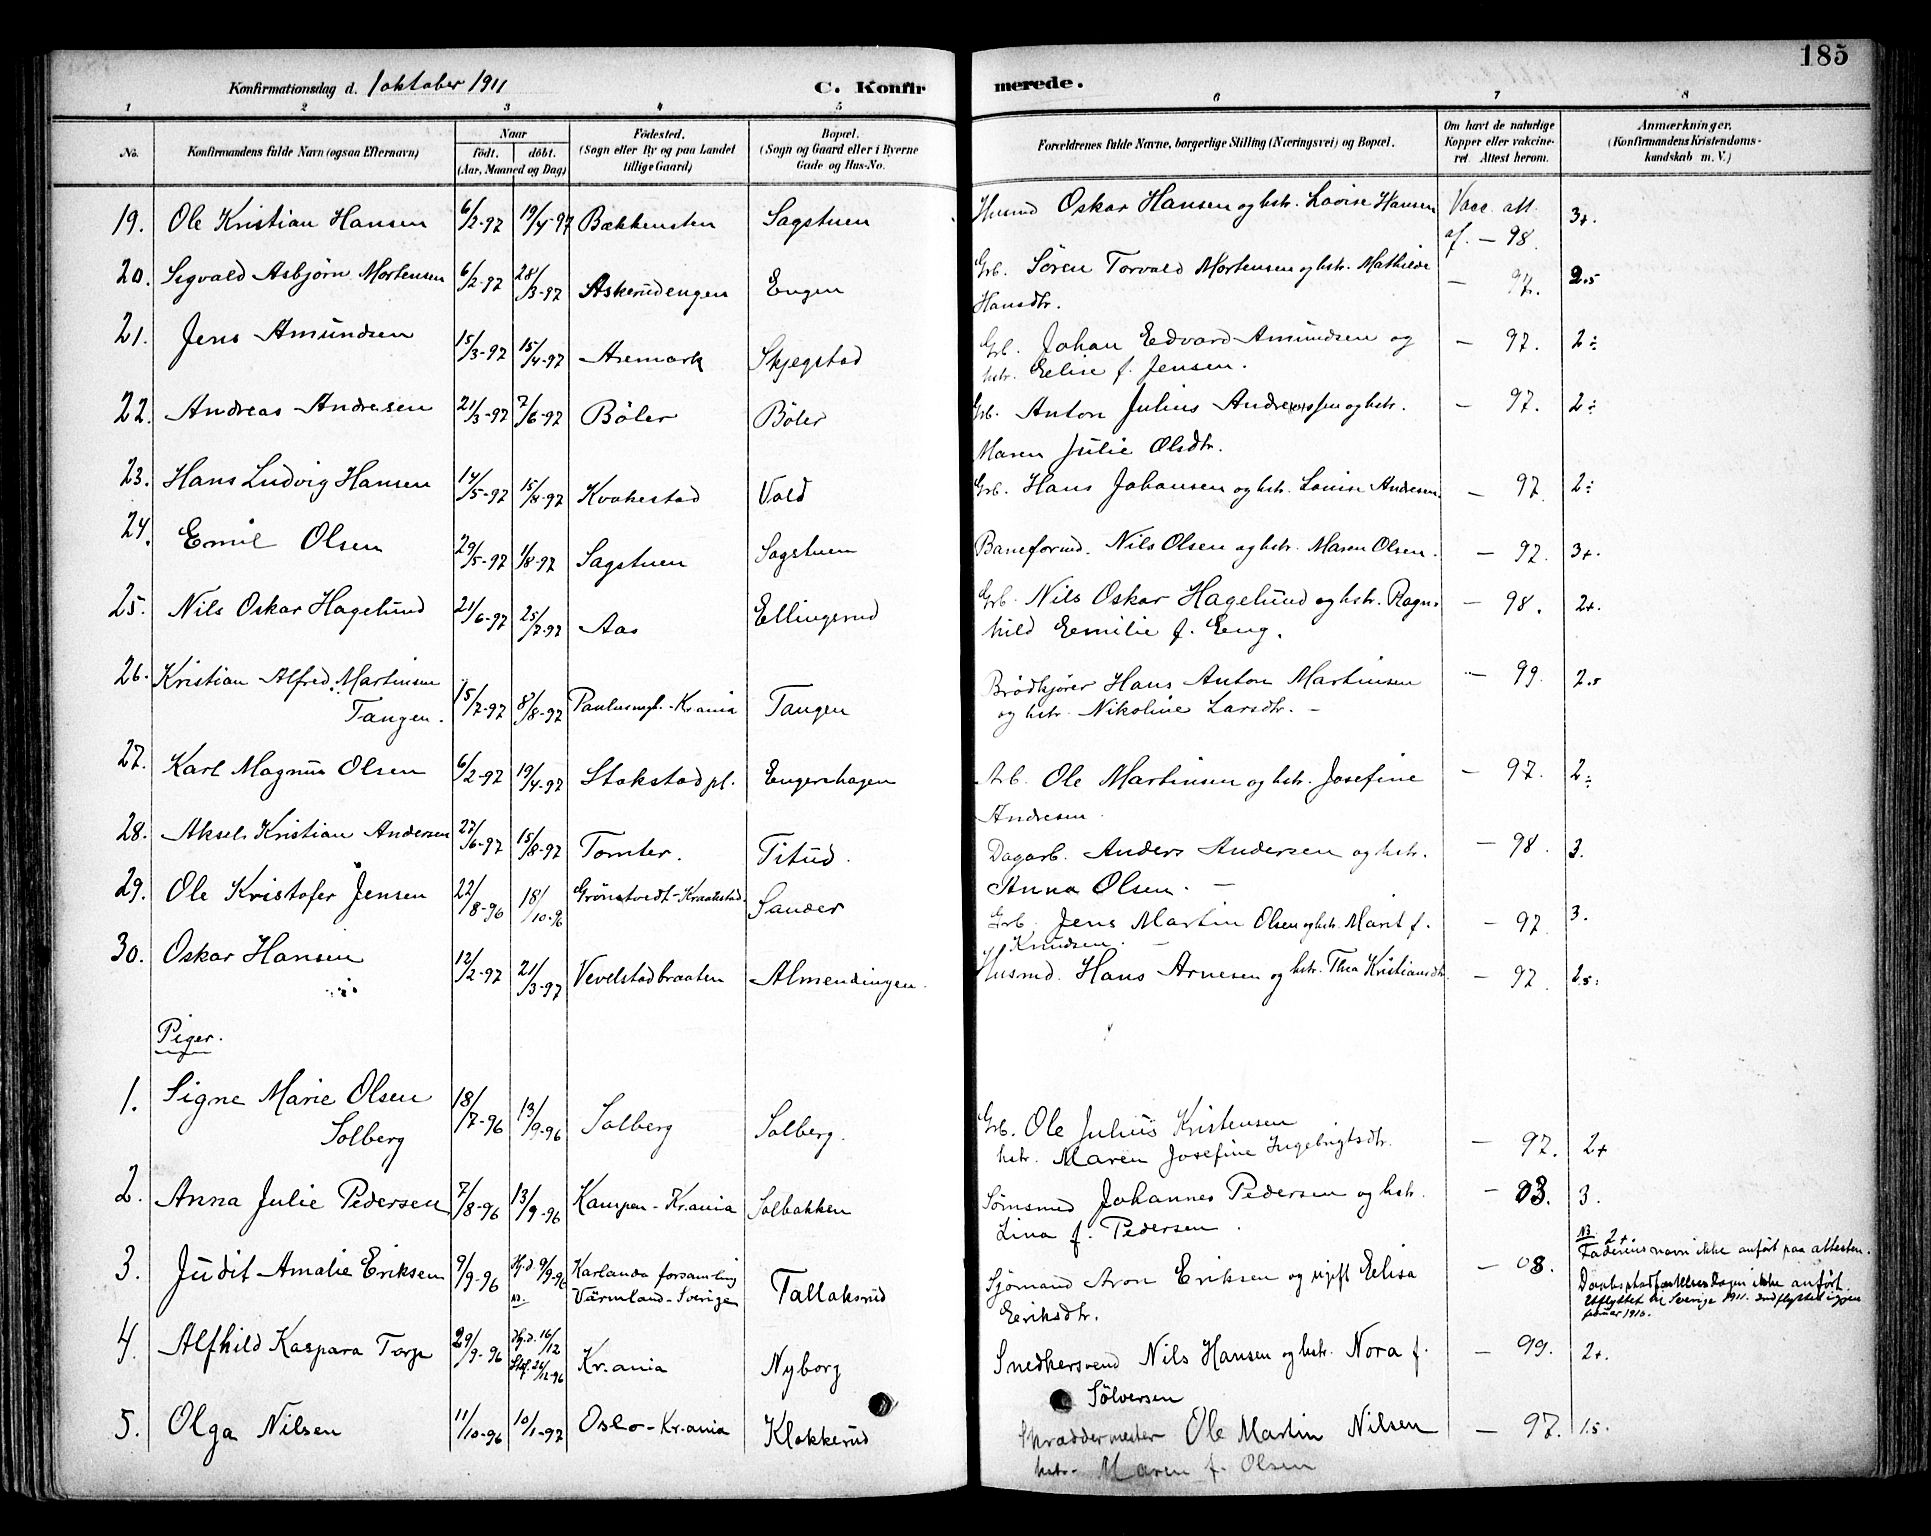 185
Konfirmationsdag d. 1 oktober 1911
C. Konfirmerede.
1 2 3 4 5 6 7 8
No. Konfirmandens fulde Navn (ogsaa Efternavn) Naar født. døbt. (Aar, Maaned og Dag) Fødested. (Sogn eller By og paa Landet tillige Gaard) Bopæl. (Sogn og Gaard eller i Byerne Gade og Hus-No. Forældrenes fulde Navne, borgerlige Stilling (Næringsvei) og Bopæl. Om havt de naturlige Kopper eller vakcineret. Attest herom. Anmærkninger. (Konfirmandens Kristendomskundskab m. V.)
19. Ole Kristian Hansen 6/2-97 19/4-97 Bækkensten Sagstuen Husmd Oskar Hansen og hstr. Lovise Hansen Vacc. att. af. – 98. 3+.
20. Sigvald Asbjørn Mortensen 6/2-97 28/3-97 Askerudengen Engen Grb. Sören Torvald Mortensen og hstr. Mathilde Hansdtr. – 97. 2.5
21. Jens Amundsen 15/3-97 15/4-97 Aremark Skjegstad Grb. Johan Edvard Amundsen og hstr. Elise f. Jensen. – 97. 2÷
22. Andreas Andresen 21/3-97 7/6-97 Böler Böler Grb. Anton Julius Andreassen og hstr. Maren Julie Olsdtr. – 97. 2÷
23. Hans Ludvig Hansen 14/5-97 15/8-97 Kvakestad Vold Grb. Hans Johansen og hstr. Louise Andresen. – 97. 2÷
24. Emil Olsen 29/5-97 1/8-97 Sagstuen Sagstuen Baneformd. Nils Olsen og hstr. Maren Olsen. – 97. 3+.
25. Nils Oskar Hagelund 21/6-97 25/7-97 Aas Ellingsrud Grb. Nils Oskar Hagelund og hstr. Ragnhild Emilie f. Eng. – 98. 2+.
26. Kristian Alfred Martinsen Tangen. 15/7-97 8/8-97 Paulusmgh. - Kr.ania Tangen Brödkjører Hans Anton Martinsen og hstr. Nikoline Larsdtr. – – 99. 2.5
27. Karl Magnus Olsen 6/2-97 19/4-97 Stakstad pl. Engershagen Arb. Ole Martinsen og hstr. Josefine Andresen – 97. 2÷
28. Aksel Kristian Andersen 27/6-97 15/8-97 Tomter. Titud. Dagarb. Anders Andersen og hstr. Anna Olsen. – – 98. 3.
29. Ole Kristofer Jensen 22/8-96 18/10-96 Grönstvedt - Kraakstad Sander Grb. Jens Martin Olsen og hstr. Marit f. Knudsen. – – 97. 3.
30. Oskar Hansen 12/2-97 21/3-97 Vevelstadbraaten Almendingen. Husmd. Hans Arnesen og hstr. Thea Kristiansdtr. – 97. 2.5.
Piger.
1. Signe Marie Olsen Solberg 18/7-96 13/9-96 Solberg Solberg. Grb. Ole Julius Kristensen hstr. Maren Josefine Ingebrigtsdtr. – 97. 2+
2. Anna Julie Pedersen 7/8-96 13/9-96 Kampen - Kr.ania Solbakken Sömsmed Johannes Pedersen og hstr. Lina f. Pedersen. – 03. 3.
3. Judit Amalie Eriksen 9/9-96 Hj.d. 9/9-96 NB. Karlanda forsamling Värmland - Sverige Tallaksrud Sjømand Aron Eriksen og ugift Elisa Eriksdtr. – 08. NB 2+ Faderens navn ikke anført paa attesten. Daabsstadfæstelsesdagen ikke anført. Utflyttet til Sverige 1911. Indflyttet igjen 1910.
4. Alfhild Kaspara Torp 29/9-96 Hj.d. 16/12 Stf. 26/12-96 Kr.ania Nyborg Snedkersvend Nils Hansen og hstr. Nora f. Sölversen – 99. 2+.
5. Olga Nilsen 11/10-96 10/1-97 Oslo - Kr.ania Klokkerud Skræddermester Ole Martin Nilsen hstr. Maren f. Olsen – 97. 1.5.